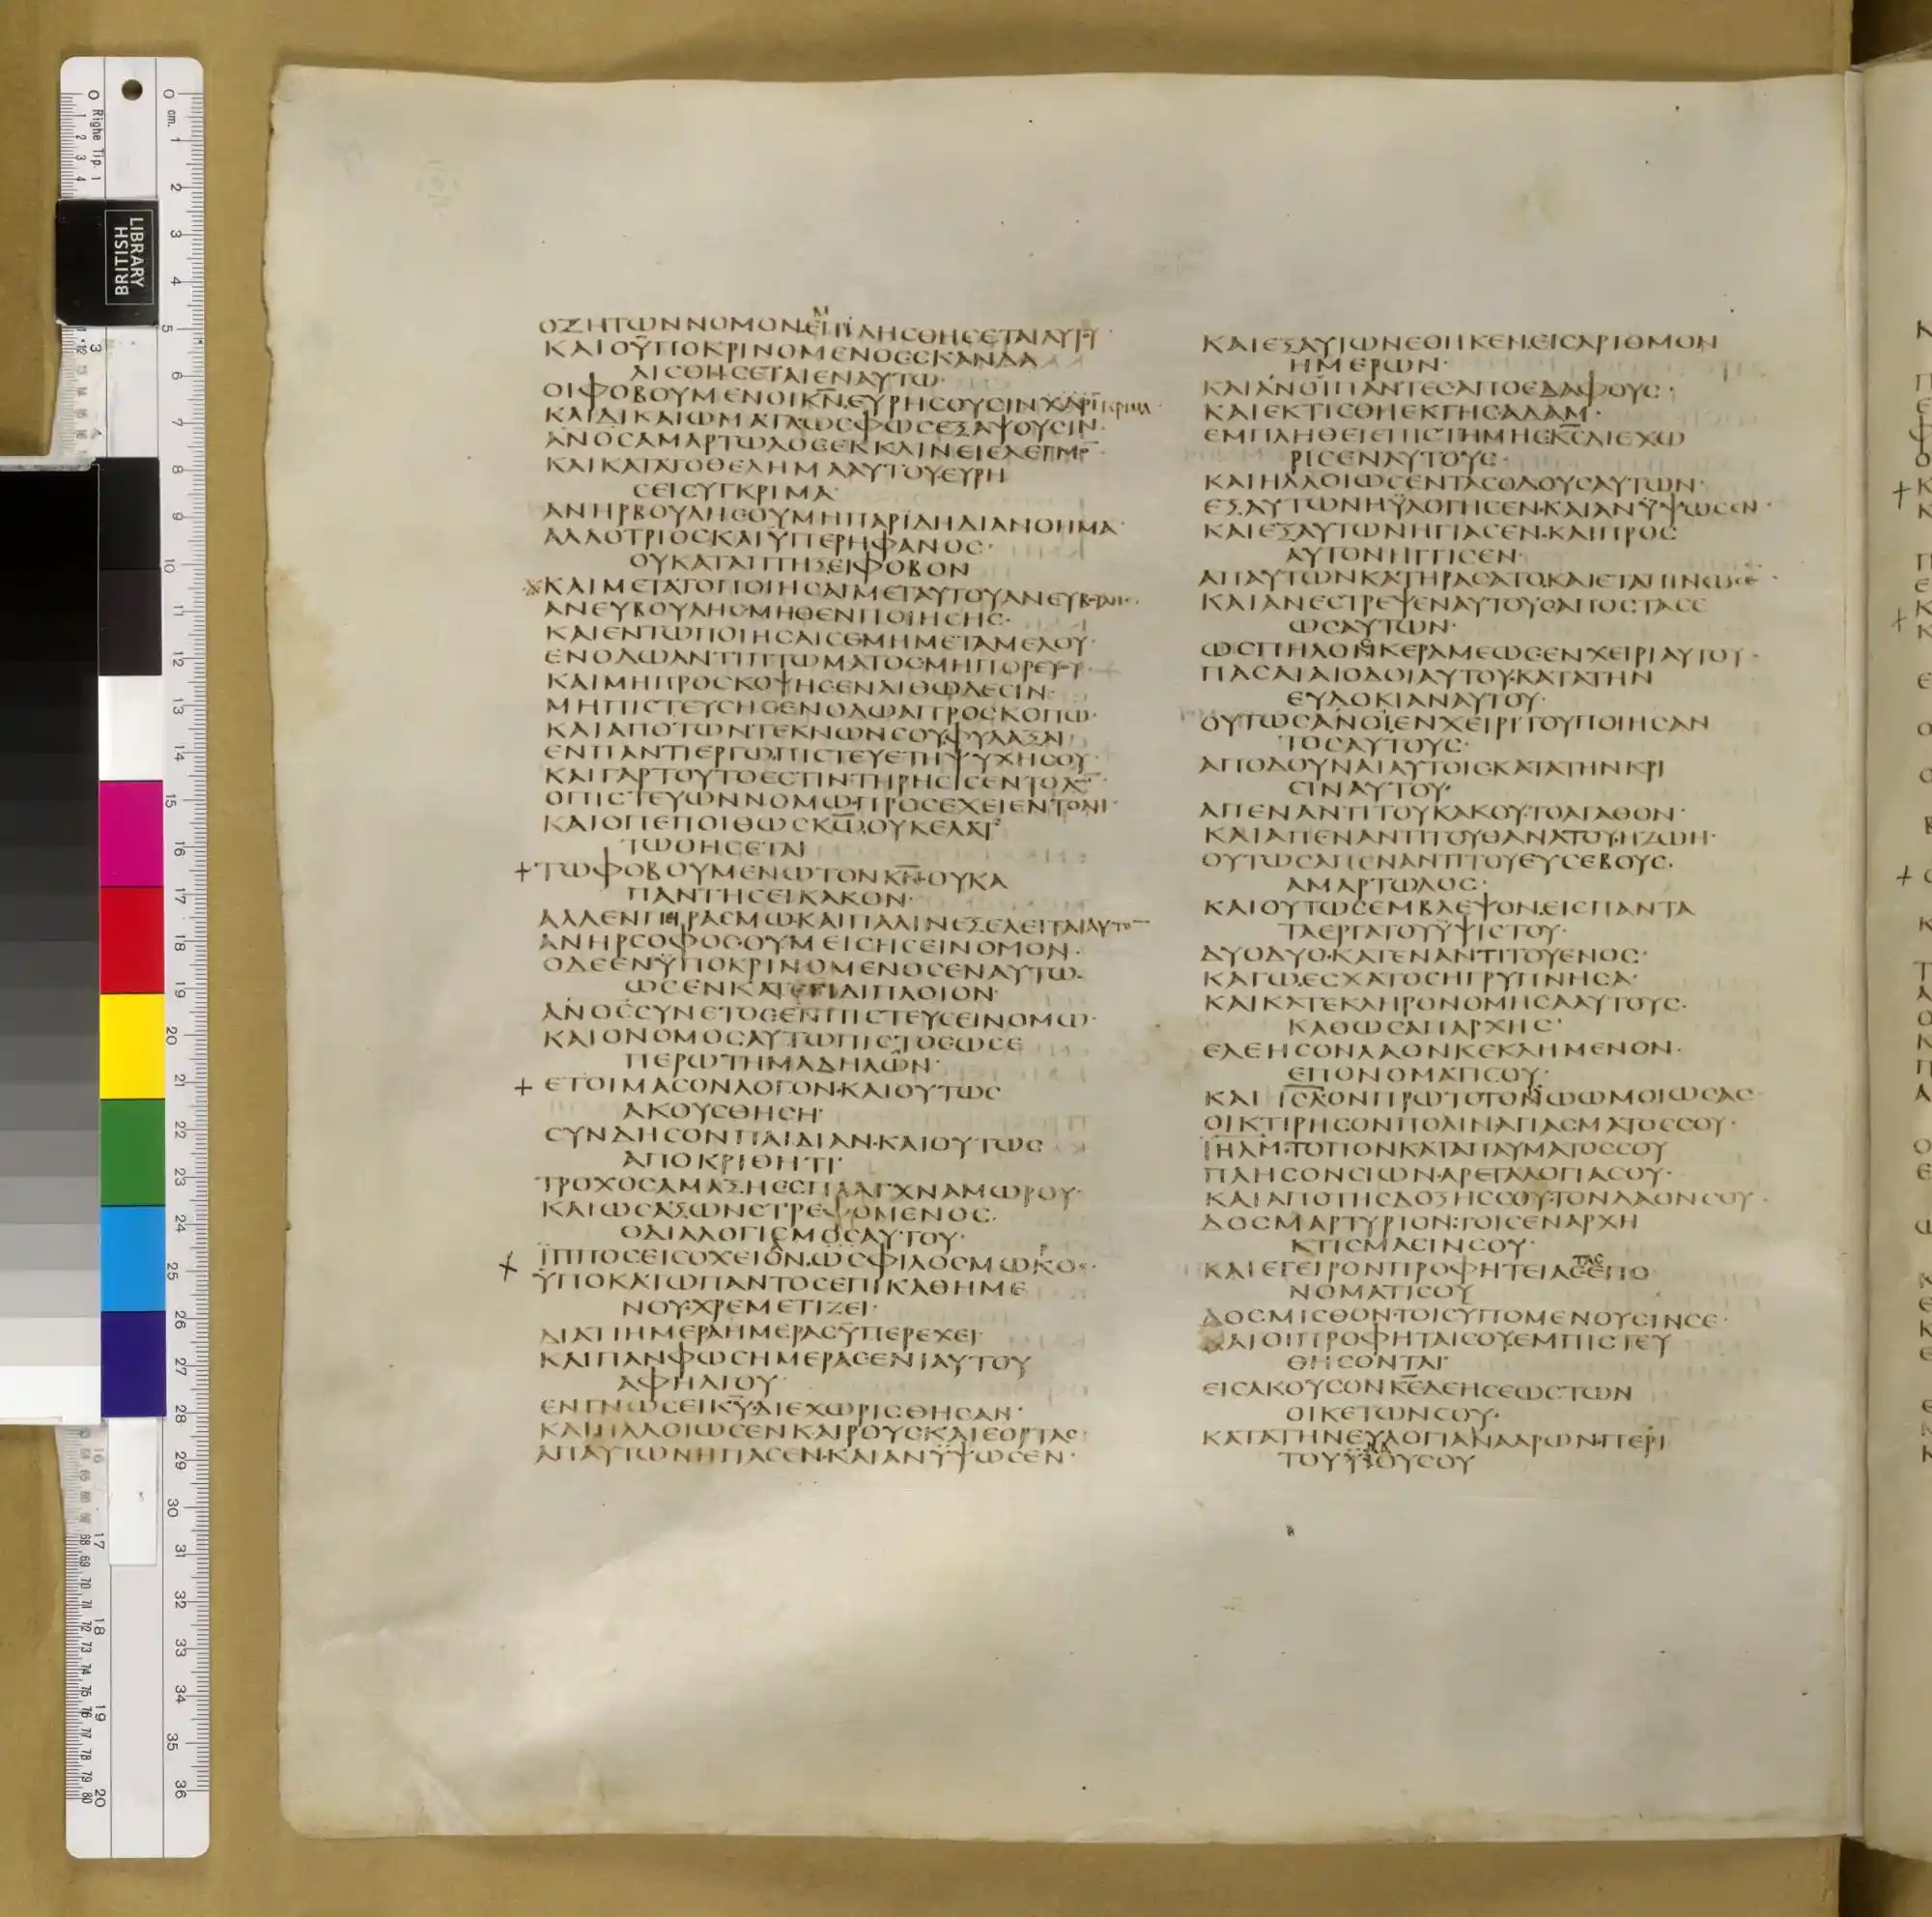 ΟΖΗΤΩΝΝΟΜΟΝΕΜΠΛΗΣΘΗΣΕΤΑΙΑΥΤΟΥ
ΚΑΙΟΫΠΟΚΡΙΝΟΜΕΝΟΣΣΚΑΝΔΑ
ΛΙΣΘΗΣΕΤΑΙΕΝΑΥΤΩ·
ΟΙΦΟΒΟΥΜΕΝΟΙΚΝ̅ΕΥΡΗΣΟΥΣΙΝ
ΚΑΙΔΙΚΑΙΩΜΑΤΑΩΣΦΩΣΕΞΑΨΟΥΣΙΝ·
ΑΝΟΣΑΜΑΡΤΩΛΟΣΕΚΚΛΙΝΕΙΕΛΕΓΜΟ̅
ΚΑΙΚΑΤΑΤΟΘΕΛΗΜΑΑΥΤΟΥΕΥΡΗ
ΣΕΙΣΥΓΚΡΙΜΑ·
ΑΝΗΡΒΟΥΛΗΣΟΥΜΗΠΑΡΙΔΗΔΙΑΝΟΗΜΑ·
ΑΛΛΟΤΡΙΟΣΚΑΙΫΠΕΡΗΦΑΝΟΣ·
ΟΥΚΑΤΑΠΤΗΞΕΙΦΟΒΟΝ
ΚΑΙΜΕΤΑΤΟΠΟΙΗΣΑΙΜΕΤΑΥΤΟΥΑΝΕΥΒΟΥΛΗΣ·
ΑΝΕΥΒΟΥΛΗΣΜΗΘΕΝΠΟΙΗΣΗΣ·
ΚΑΙΕΝΤΩΠΟΙΗΣΑΙΣΕΜΗΜΕΤΑΜΕΛΟΥ·
ΕΝΟΔΩΑΝΤΙΠΤΩΜΑΤΟΣΜΗΠΟΡΕΥΟΥ·
ΚΑΙΜΗΠΡΟΣΚΟΨΗΣΕΝΛΙΘΩΔΕΣΙΝ·
ΜΗΠΙΣΤΕΥΣΗΣΕΝΟΔΩΑΠΡΟΣΚΟΠΩ·
ΚΑΙΑΠΟΤΩΝΤΕΚΝΩΝΣΟΥΦΥΛΑΞΑΙ
ΕΝΠΑΝΤΙΕΡΓΩΠΙΣΤΕΥΕΤΗΨΥΧΗΣΟΥ·
ΚΑΙΓΑΡΤΟΥΤΟΕΣΤΙΝΤΗΡΗΣΙΣΕΝΤΟΛΩ̅·
ΟΠΙΣΤΕΥΩΝΝΟΜΩΠΡΟΣΕΧΕΙΕΝΤΟΛΗ·
ΚΑΙΟΠΕΠΟΙΘΩΣΚΩ̅ΟΥΚΕΛΑΤ
ΤΩΘΗΣΕΤΑΙ
+ΤΩΦΟΒΟΥΜΕΝΩΤΟΝΚΝ̅ΟΥΚΑ
ΠΑΝΤΗΣΕΙΚΑΚΟΝ·
ΑΛΛΕΝΠΙΡΑΣΜΩΚΑΙΠΑΛΙΝΕΞΕΛΕΙΤΑΙΑΥΤΟ̅
ΑΝΗΡΣΟΦΟΣΟΥΜΕΙΣΗΣΕΙΝΟΜΟΝ·
ΟΔΕΕΝΫΠΟΚΡΙΝΟΜΕΝΟΣΕΝΑΥΤΩ·
ΩΣΕΝΚΑΤΕΓΙΔΙΠΛΟΙΟΝ·
ΑΝΟΣΣΥΝΕΤΟΣΕΝΠΙΣΤΕΥΣΕΙΝΟΜΩ·
ΚΑΙΟΝΟΜΟΣΑΥΤΩΠΙΣΤΟΣΩΣΕ
ΠΕΡΩΤΗΜΑΔΗΛΩΝ·
+ ΕΤΟΙΜΑΣΟΝΛΟΓΟΝ·ΚΑΙΟΥΤΩΣ
ΑΚΟΥΣΘΗΣΗ·
ΣΥΝΔΗΣΟΝΠΑΙΔΙΑΝ·ΚΑΙΟΥΤΩΣ
ΑΠΟΚΡΙΘΗΤΙ·
ΤΡΟΧΟΣΑΜΑΞΗΣΣΠΛΑΓΧΝΑΜΩΡΟΥ·
ΚΑΙΩΣΑΞΩΝΣΤΡΕΦΟΜΕΝΟΣ
ΟΔΙΑΛΟΓΙΣΜΟΣΑΥΤΟΥ·
ΪΠΠΟΣΕΙΣΟΧΕΙΟΝ·ΩΣΦΙΛΟΣΜΩΚΟΣ·
ΫΠΟΚΑΤΩΠΑΝΤΟΣΕΠΙΚΑΘΗΜΕ
ΝΟΥΧΡΕΜΕΤΙΖΕΙ·
ΔΙΑΤΙΗΜΕΡΑΗΜΕΡΑΣΫΠΕΡΕΧΕΙ
ΚΑΙΠΑΝΦΩΣΗΜΕΡΑΣΕΝΙΑΥΤΟΥ
ΑΦΗΛΙΟΥ·
ΕΝΓΝΩΣΕΙΚΥ̅ΔΙΕΧΩΡΙΣΘΗΣΑΝ·
ΚΑΙΗΛΛΟΙΩΣΕΝΚΑΙΡΟΥΣΚΑΙΕΟΡΤΑΣ·
ΑΠΑΥΤΩΝΗΓΙΑΣΕΝ·ΚΑΙΑΝΫΨΩΣΕΝ·
ΚΑΙΕΞΑΥΤΩΝΕΘΗΚΕΝΕΙΣΑΡΙΘΜΟΝ
ΗΜΕΡΩΝ·
ΚΑΙΑΝΟΙΠΑΝΤΕΣΑΠΟΕΔΑΦΟΥΣ·
ΚΑΙΕΚΤΙΣΘΗΕΚΓΗΣΑΔΑΜ·
ΕΜΠΛΗΘΕΙΕΠΙΣΤΗΜΗΣΚΣ̅ΔΙΕΧΩ
ΡΙΣΕΝΑΥΤΟΥΣ·
ΚΑΙΗΛΛΟΙΩΣΕΝΤΑΣΟΔΟΥΣΑΥΤΩΝ·
ΕΞΑΥΤΩΝΗΫΛΟΓΗΣΕΝ·ΚΑΙΑΝΫΨΩΣΕΝ·
ΚΑΙΕΞΑΥΤΩΝΗΓΙΑΣΕΝ·ΚΑΙΠΡΟΣ
ΑΥΤΟΝΗΓΓΙΣΕΝ·
ΑΠΑΥΤΩΝΚΑΤΗΡΑΣΑΤΟ·ΚΑΙΕΤΑΠΙΝΩΣΕ·
ΚΑΙΑΝΕΣΤΡΕΨΕΝΑΥΤΟΥΣΑΠΟΣΤΑΣΕ
ΩΣΑΥΤΩΝ·
ΩΣΠΗΛΟΣΚΕΡΑΜΕΩΣΕΝΧΕΙΡΙΑΥΤΟΥ·
ΠΑΣΑΙΑΙΟΔΟΙΑΥΤΟΥΚΑΤΑΤΗΝ
ΕΥΔΟΚΙΑΝΑΥΤΟΥ·
ΟΥΤΩΣΑΝΟΙΕΝΧΕΙΡΙΤΟΥΠΟΙΗΣΑΝ
ΤΟΣΑΥΤΟΥΣ·
ΑΠΟΔΟΥΝΑΙΑΥΤΟΙΣΚΑΤΑΤΗΝΚΡΙ
ΣΙΝΑΥΤΟΥ·
ΑΠΕΝΑΝΤΙΤΟΥΚΑΚΟΥ·ΤΟΑΓΑΘΟΝ·
ΚΑΙΑΠΕΝΑΝΤΙΤΟΥΘΑΝΑΤΟΥ·ΗΖΩΗ·
ΟΥΤΩΣΑΠΕΝΑΝΤΙΤΟΥΕΥΣΕΒΟΥΣ·
ΑΜΑΡΤΩΛΟΣ·
ΚΑΙΟΥΤΩΣΕΜΒΛΕΨΟΝΕΙΣΠΑΝΤΑ
ΤΑΕΡΓΑΤΟΥΫΨΙΣΤΟΥ·
ΔΥΟΔΥΟ·ΚΑΤΕΝΑΝΤΙΤΟΥΕΝΟΣ·
ΚΑΓΩΕΣΧΑΤΟΣΗΓΡΥΠΝΗΣΑ·
ΚΑΙΚΑΤΕΚΛΗΡΟΝΟΜΗΣΑΑΥΤΟΥΣ·
ΚΑΘΩΣΑΠΑΡΧΗΣ·
ΕΛΕΗΣΟΝΛΑΟΝΚΕΚΛΗΜΕΝΟΝ·
ΕΠΟΝΟΜΑΤΙΣΟΥ·
ΚΑΙΙΣΛΟΝΠΡΩΤΟΓΟΝΩΩΜΟΙΩΣΑΣ
ΟΙΚΤΙΡΗΣΟΝΠΟΛΙΝΑΓΙΑΣΜΑΤΟΣΣΟΥ·
ΪΗΛΜ·ΤΟΠΟΝΚΑΤΑΠΑΥΜΑΤΟΣΣΟΥ
ΠΛΗΣΟΝΣΙΩΝ·ΑΡΕΤΑΛΟΓΙΑΣΟΥ·
ΚΑΙΑΠΟΤΗΣΔΟΞΗΣΣΟΥ·ΤΟΝΛΑΟΝΣΟΥ·
ΔΟΣΜΑΡΤΥΡΙΟΝ·ΤΟΙΣΕΝΑΡΧΗ
ΚΤΙΣΜΑΣΙΝΣΟΥ·
ΚΑΙΕΓΕΙΡΟΝΠΡΟΦΗΤΕΙΑΣΤΑΣΕΠΟ
ΝΟΜΑΤΙΣΟΥ
ΔΟΣΜΙΣΘΟΝ·ΤΟΙΣΥΠΟΜΕΝΟΥΣΙΝΣΕ·
ΚΑΙΟΙΠΡΟΦΗΤΑΙΣΟΥΕΜΠΙΣΤΕΥ
ΘΗΣΟΝΤΑΙ·
ΕΙΣΑΚΟΥΣΟΝΚΕ̅ΔΕΗΣΕΩΣΤΩΝ
ΟΙΚΕΤΩΝΣΟΥ·
ΚΑΤΑΤΗΝΕΥΛΟΓΙΑΝΑΑΡΩΝΠΕΡΙ
ΤΟΥΛΑΟΥΣΟΥ
BRITISH LIBRARY